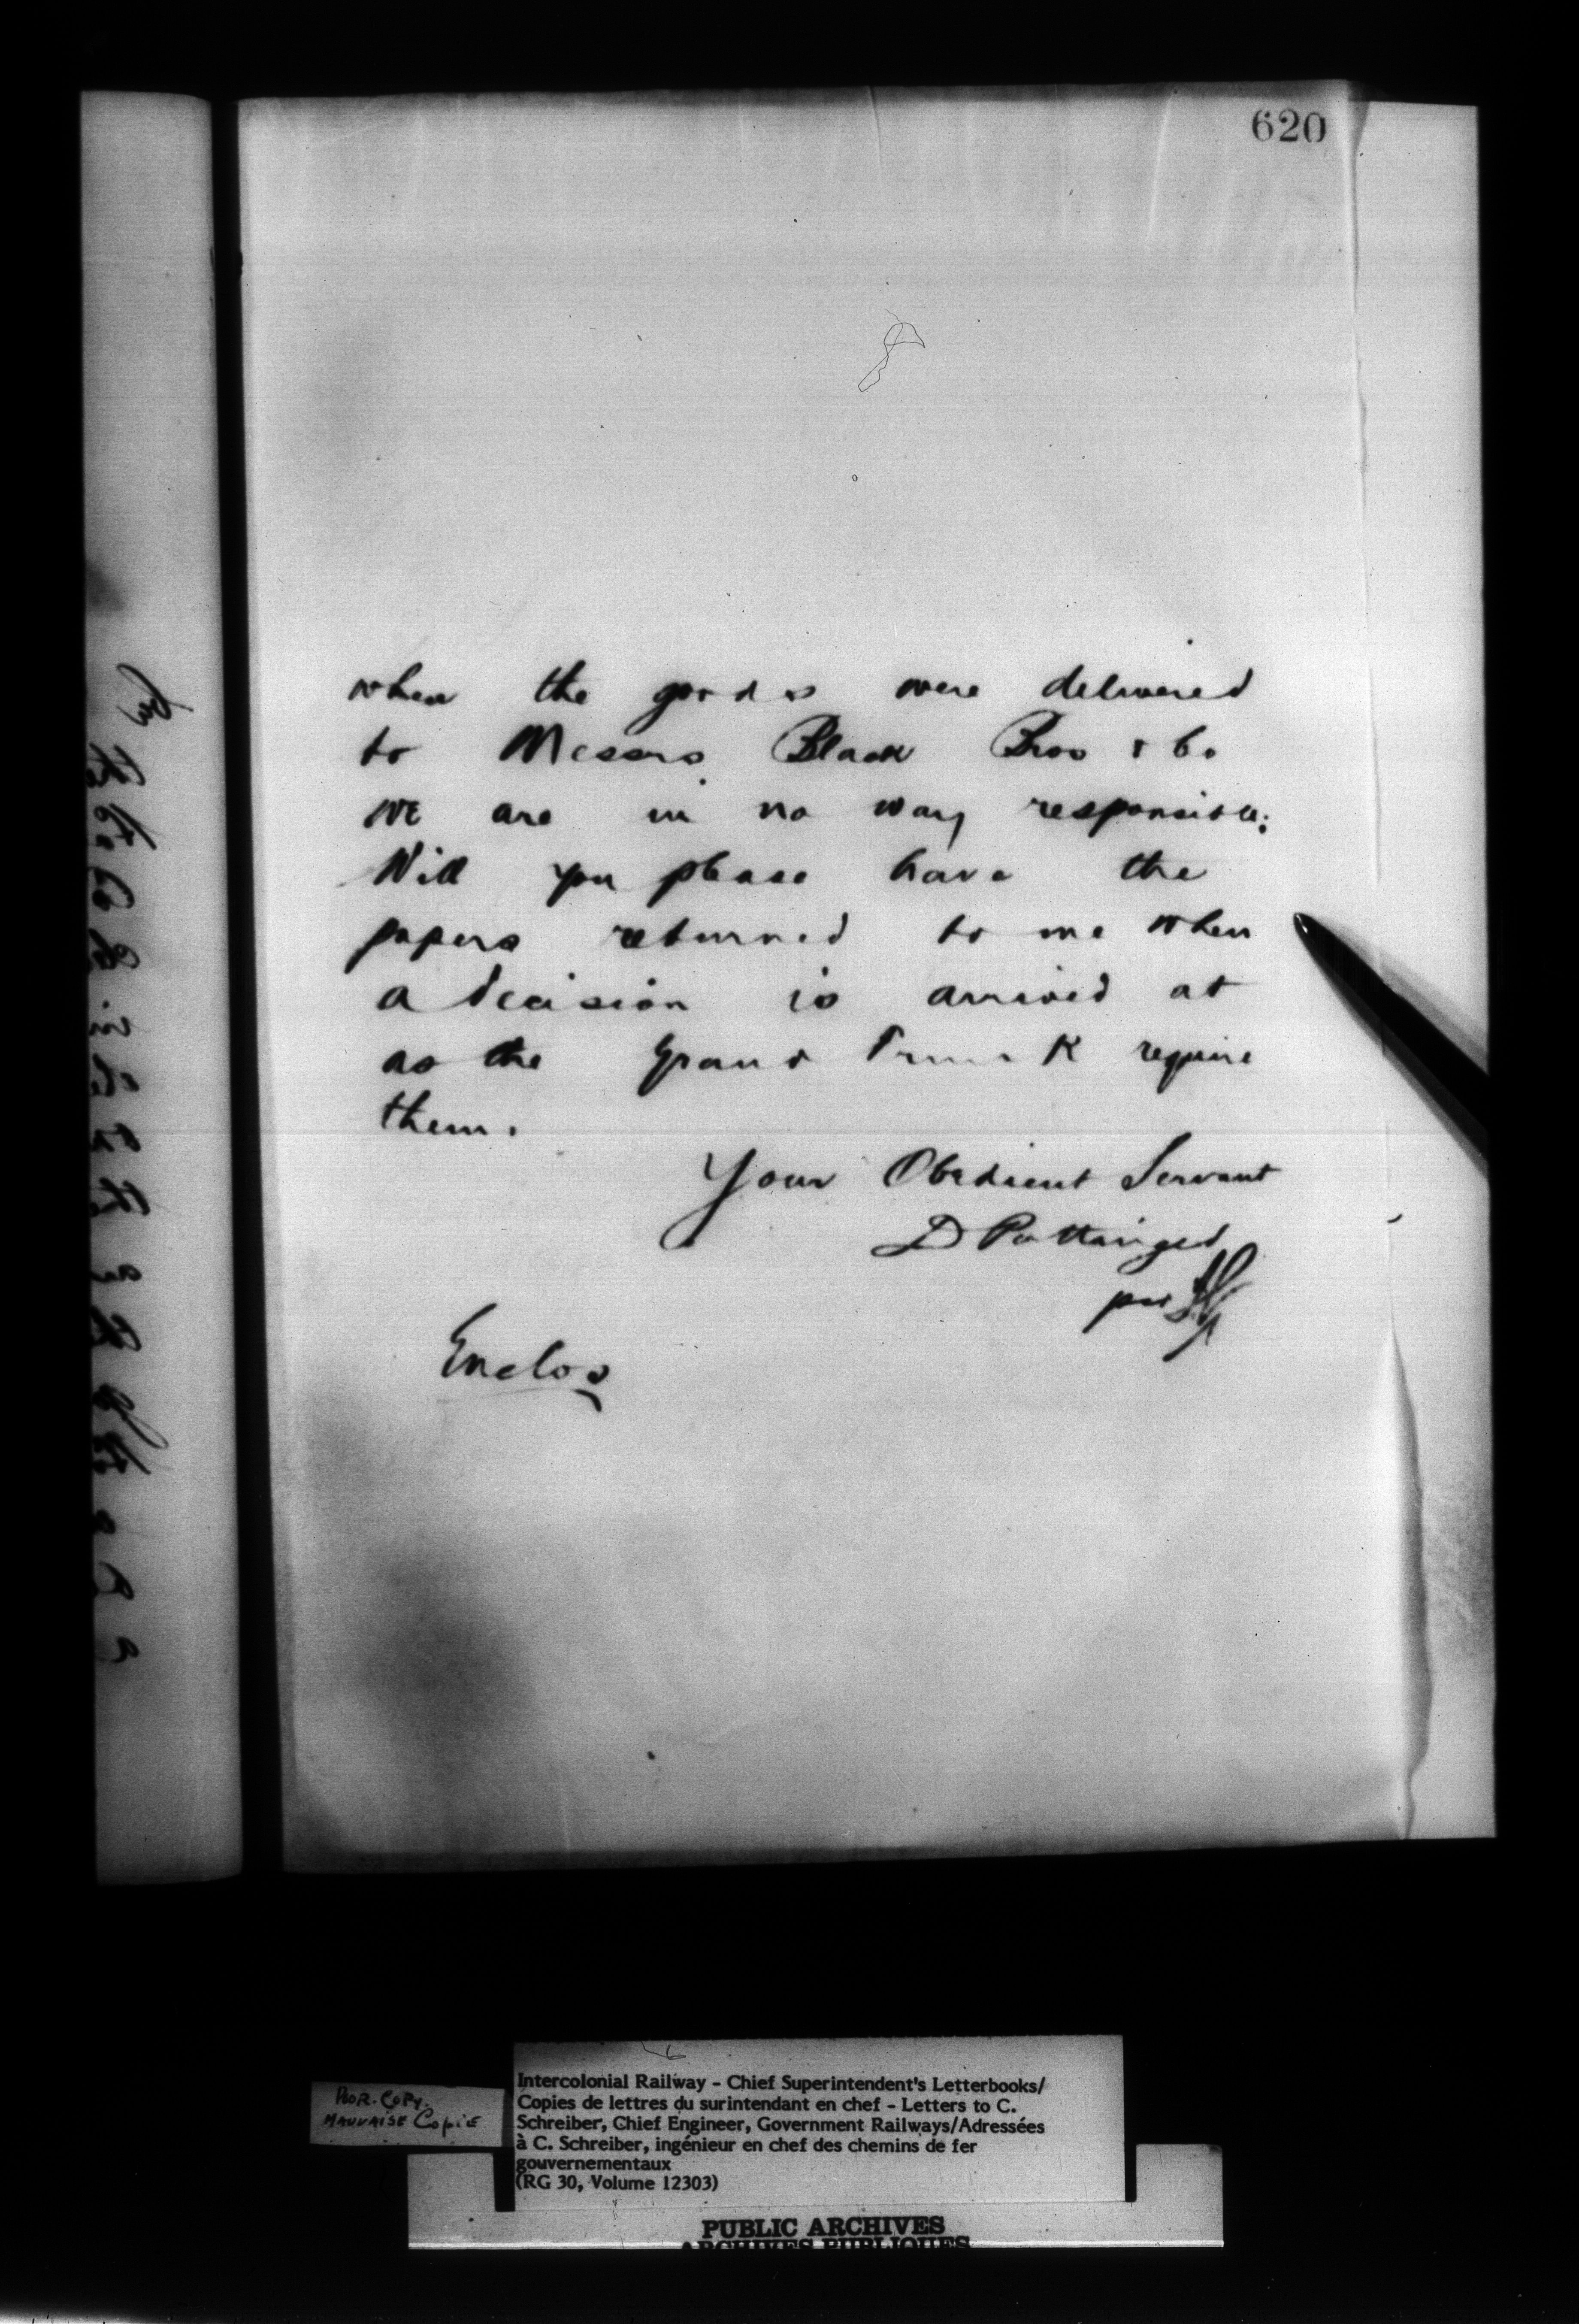 620
when the goods were delivered
to Messrs Black Bros & Co
we are in no way responsible:
Will you please have the
papers returned to me when
a decision is arrived at
as the Grand Trunk require
them.
Your Obedient Servant
D Pottinger
per
Enclos
POOR COPY.
MAUVAISE COPIE
Intercolonial Railway - Chief Superintendent's Letterbooks/
Copies de lettres du surintendant en chef - Letters to C.
Schreiber, Chief Engineer, Government Railways/Adressées
à C. Schreiber, ingénieur en chef des chemins de fer
gouvernementaux
(RG 30, Volume 12303)
PUBLIC ARCHIVES
ARCHIVES PUBLIQUES